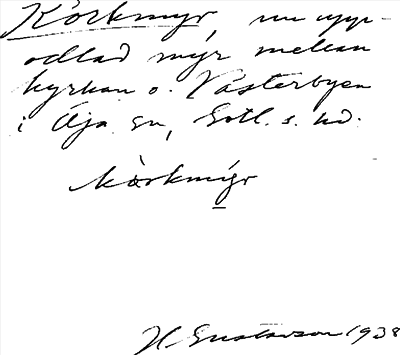 Körkmyr, nu upp-
odlad myr mellan
kyrkan o. Västerbyen
i Öja sn, Gotl. s. hd.
kòrkmýr
H Gustavson 1938